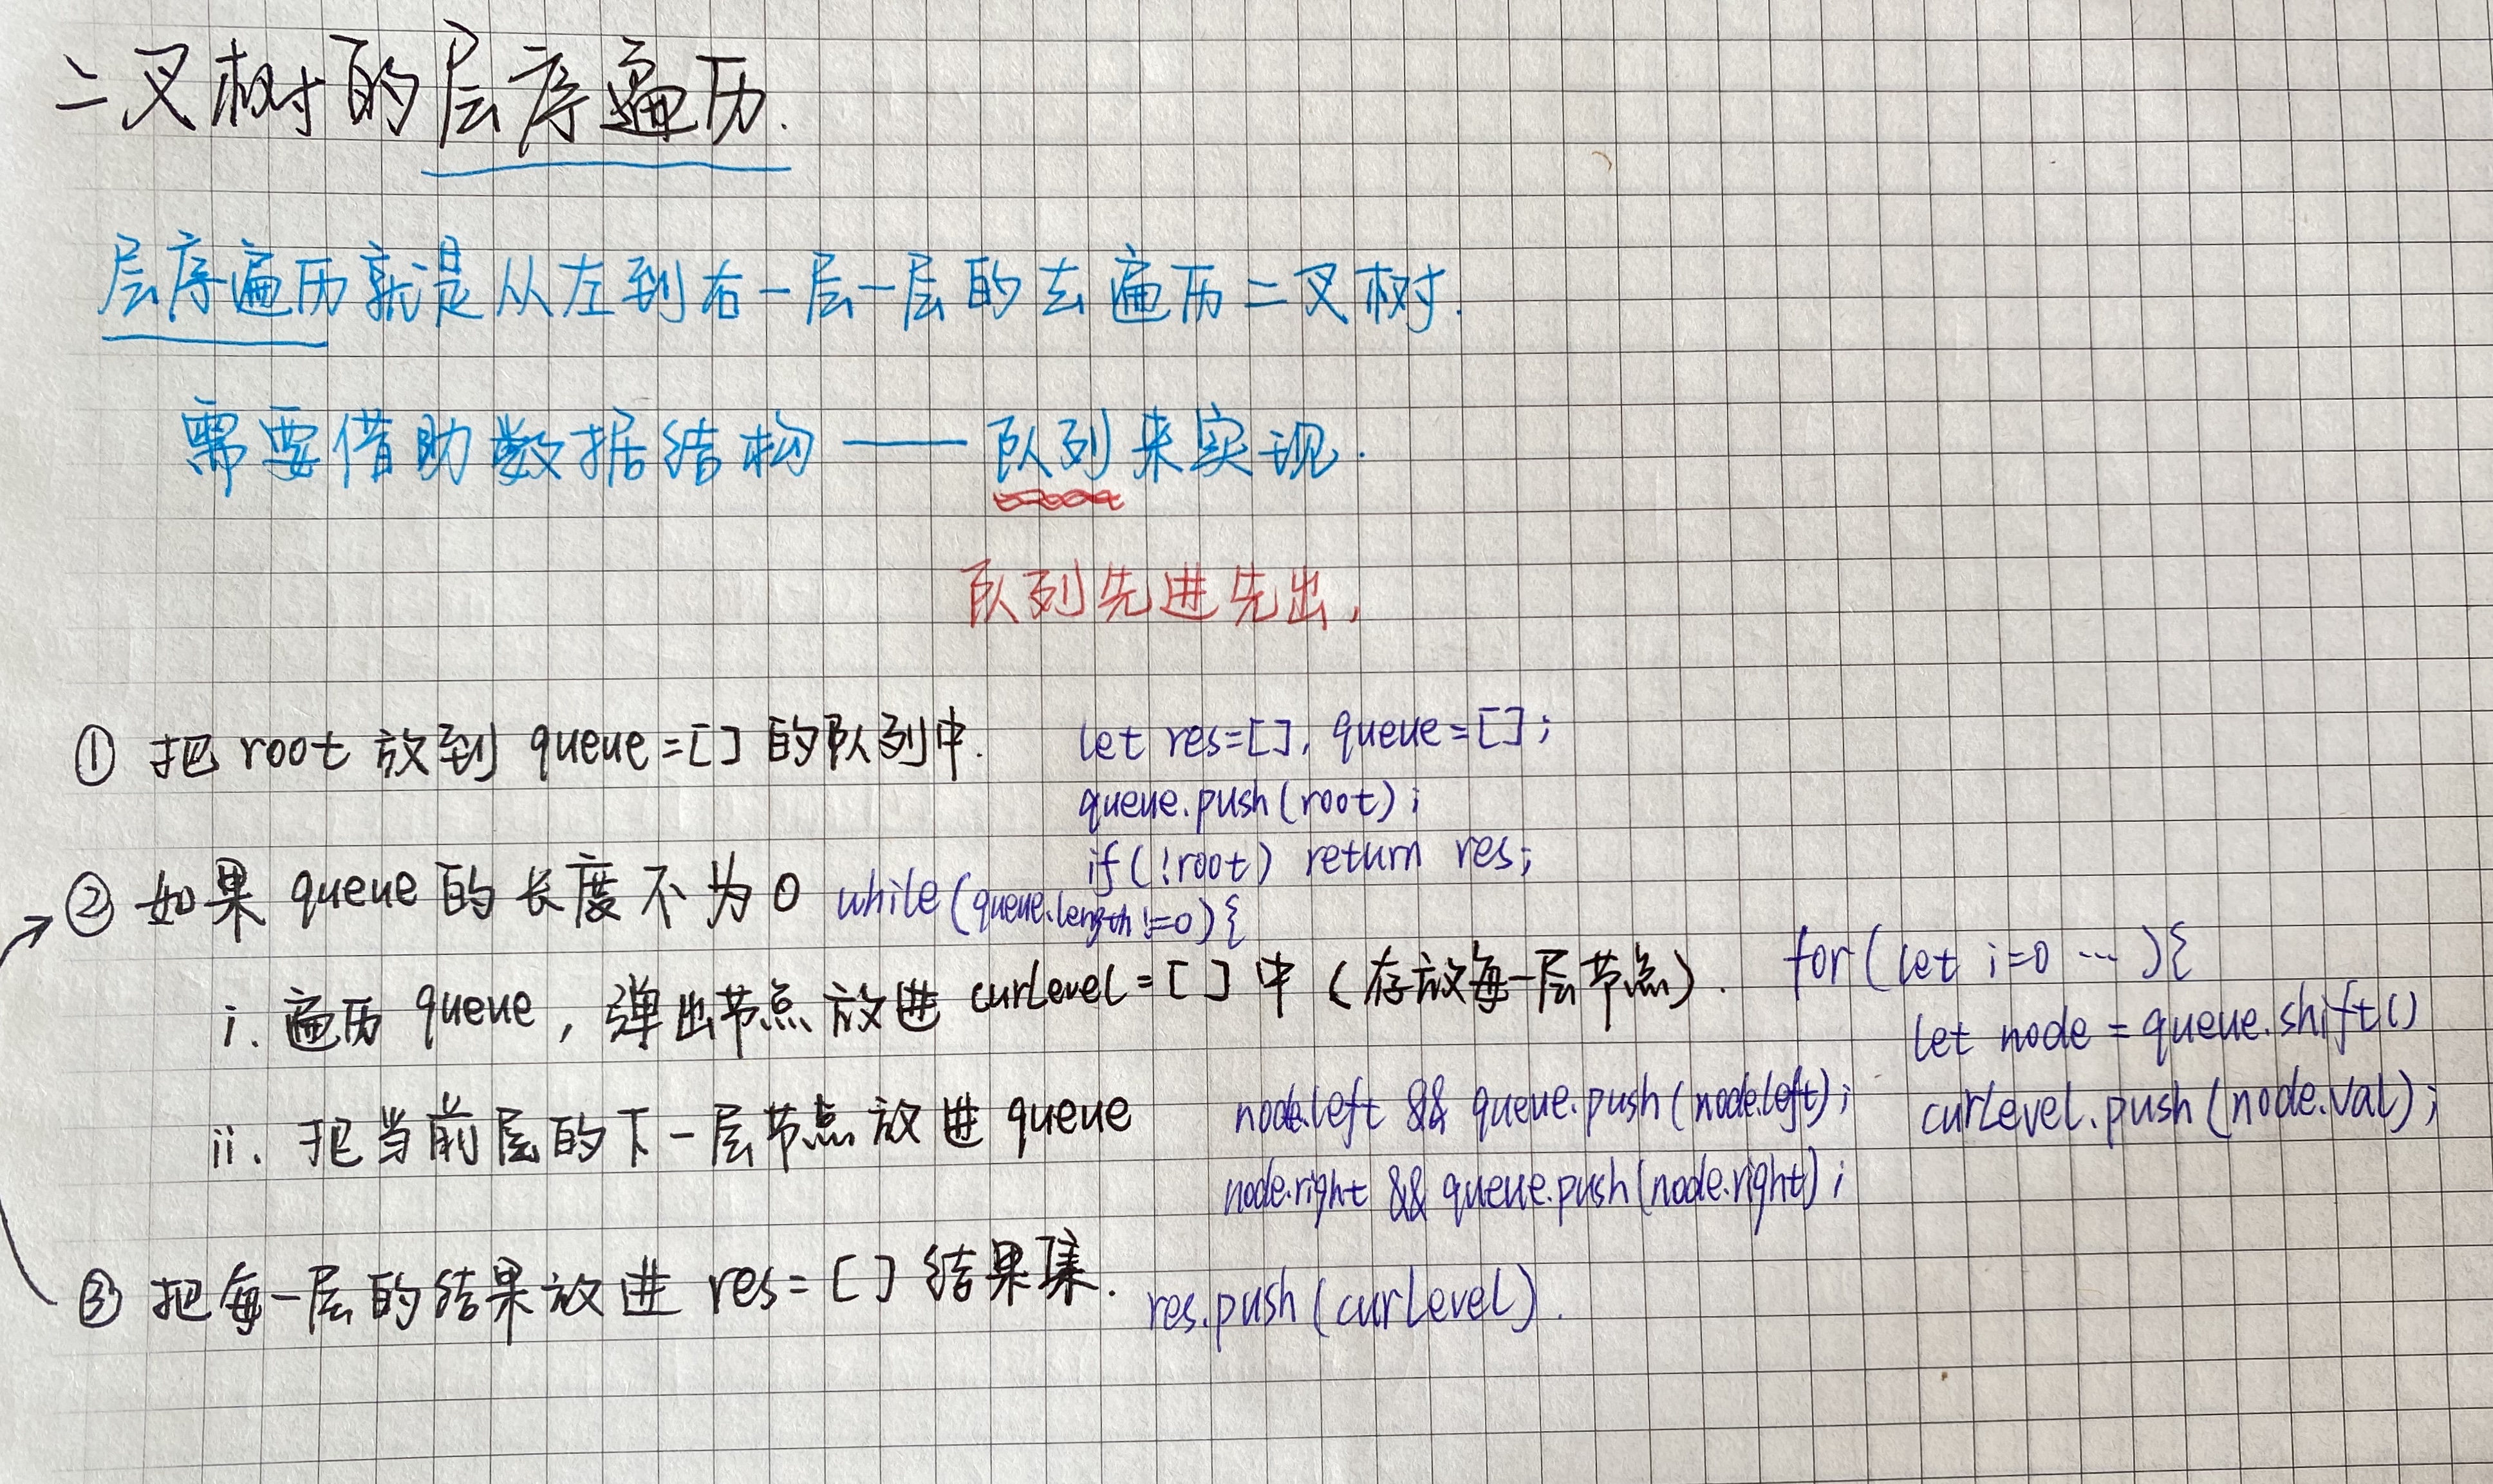 二叉树的层序遍历.
层序遍历就是从左到右一层一层的去遍历二叉树.
需要借助数据结构——队列来实现.
队列先进先出,
① 把 root 放到 queue=[] 的队列中.
let res=[], queue=[];
queue.push(root);
if(!root) return res;
② 如果 queue 的长度不为 0 while(queue.length!=0){
i. 遍历 queue, 弹出节点放进 curLevel=[] 中 (存放每一层节点).
for(let i=0 ... ){
let node = queue.shift()
curLevel.push(node.val);
ii. 把当前层的下一层节点放进 queue
node.left && queue.push(node.left);
node.right && queue.push(node.right);
③ 把每一层的结果放进 res=[] 结果集.
res.push(curLevel).